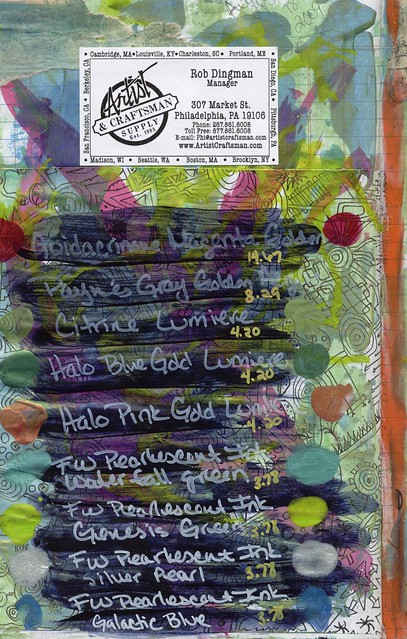 Cambridge, MA • Louisville, KY • Charleston, SC • Portland, ME
Berkeley, CA
San Francisco, CA
San Diego, CA
Pittsburgh, PA
Artist
& CRAFTSMAN
SUPPLY
Est. 1985
Rob Dingman
Manager
307 Market St.
Philadelphia, PA 19106
Phone: 267.861.6008
Toll Free: 877.861.6008
E-mail: Phi@artistcraftsman.com
www.ArtistCraftsman.com
Madison, WI • Seattle, WA • Boston, MA • Brooklyn, NY
2009
Magenta Golden
19.67
Payne's Gray Golden
8.29
Citrine Lumiere
4.20
Halo Blue Gold Lumiere
4.20
Halo Pink Gold Lumiere
4.20
FW Pearlescent Ink
Waterfall Green 3.78
FW Pearlescent Ink
Genesis Green 3.78
FW Pearlescent Ink
Silver Pearl 3.78
FW Pearlescent Ink
Galactic Blue 3.78